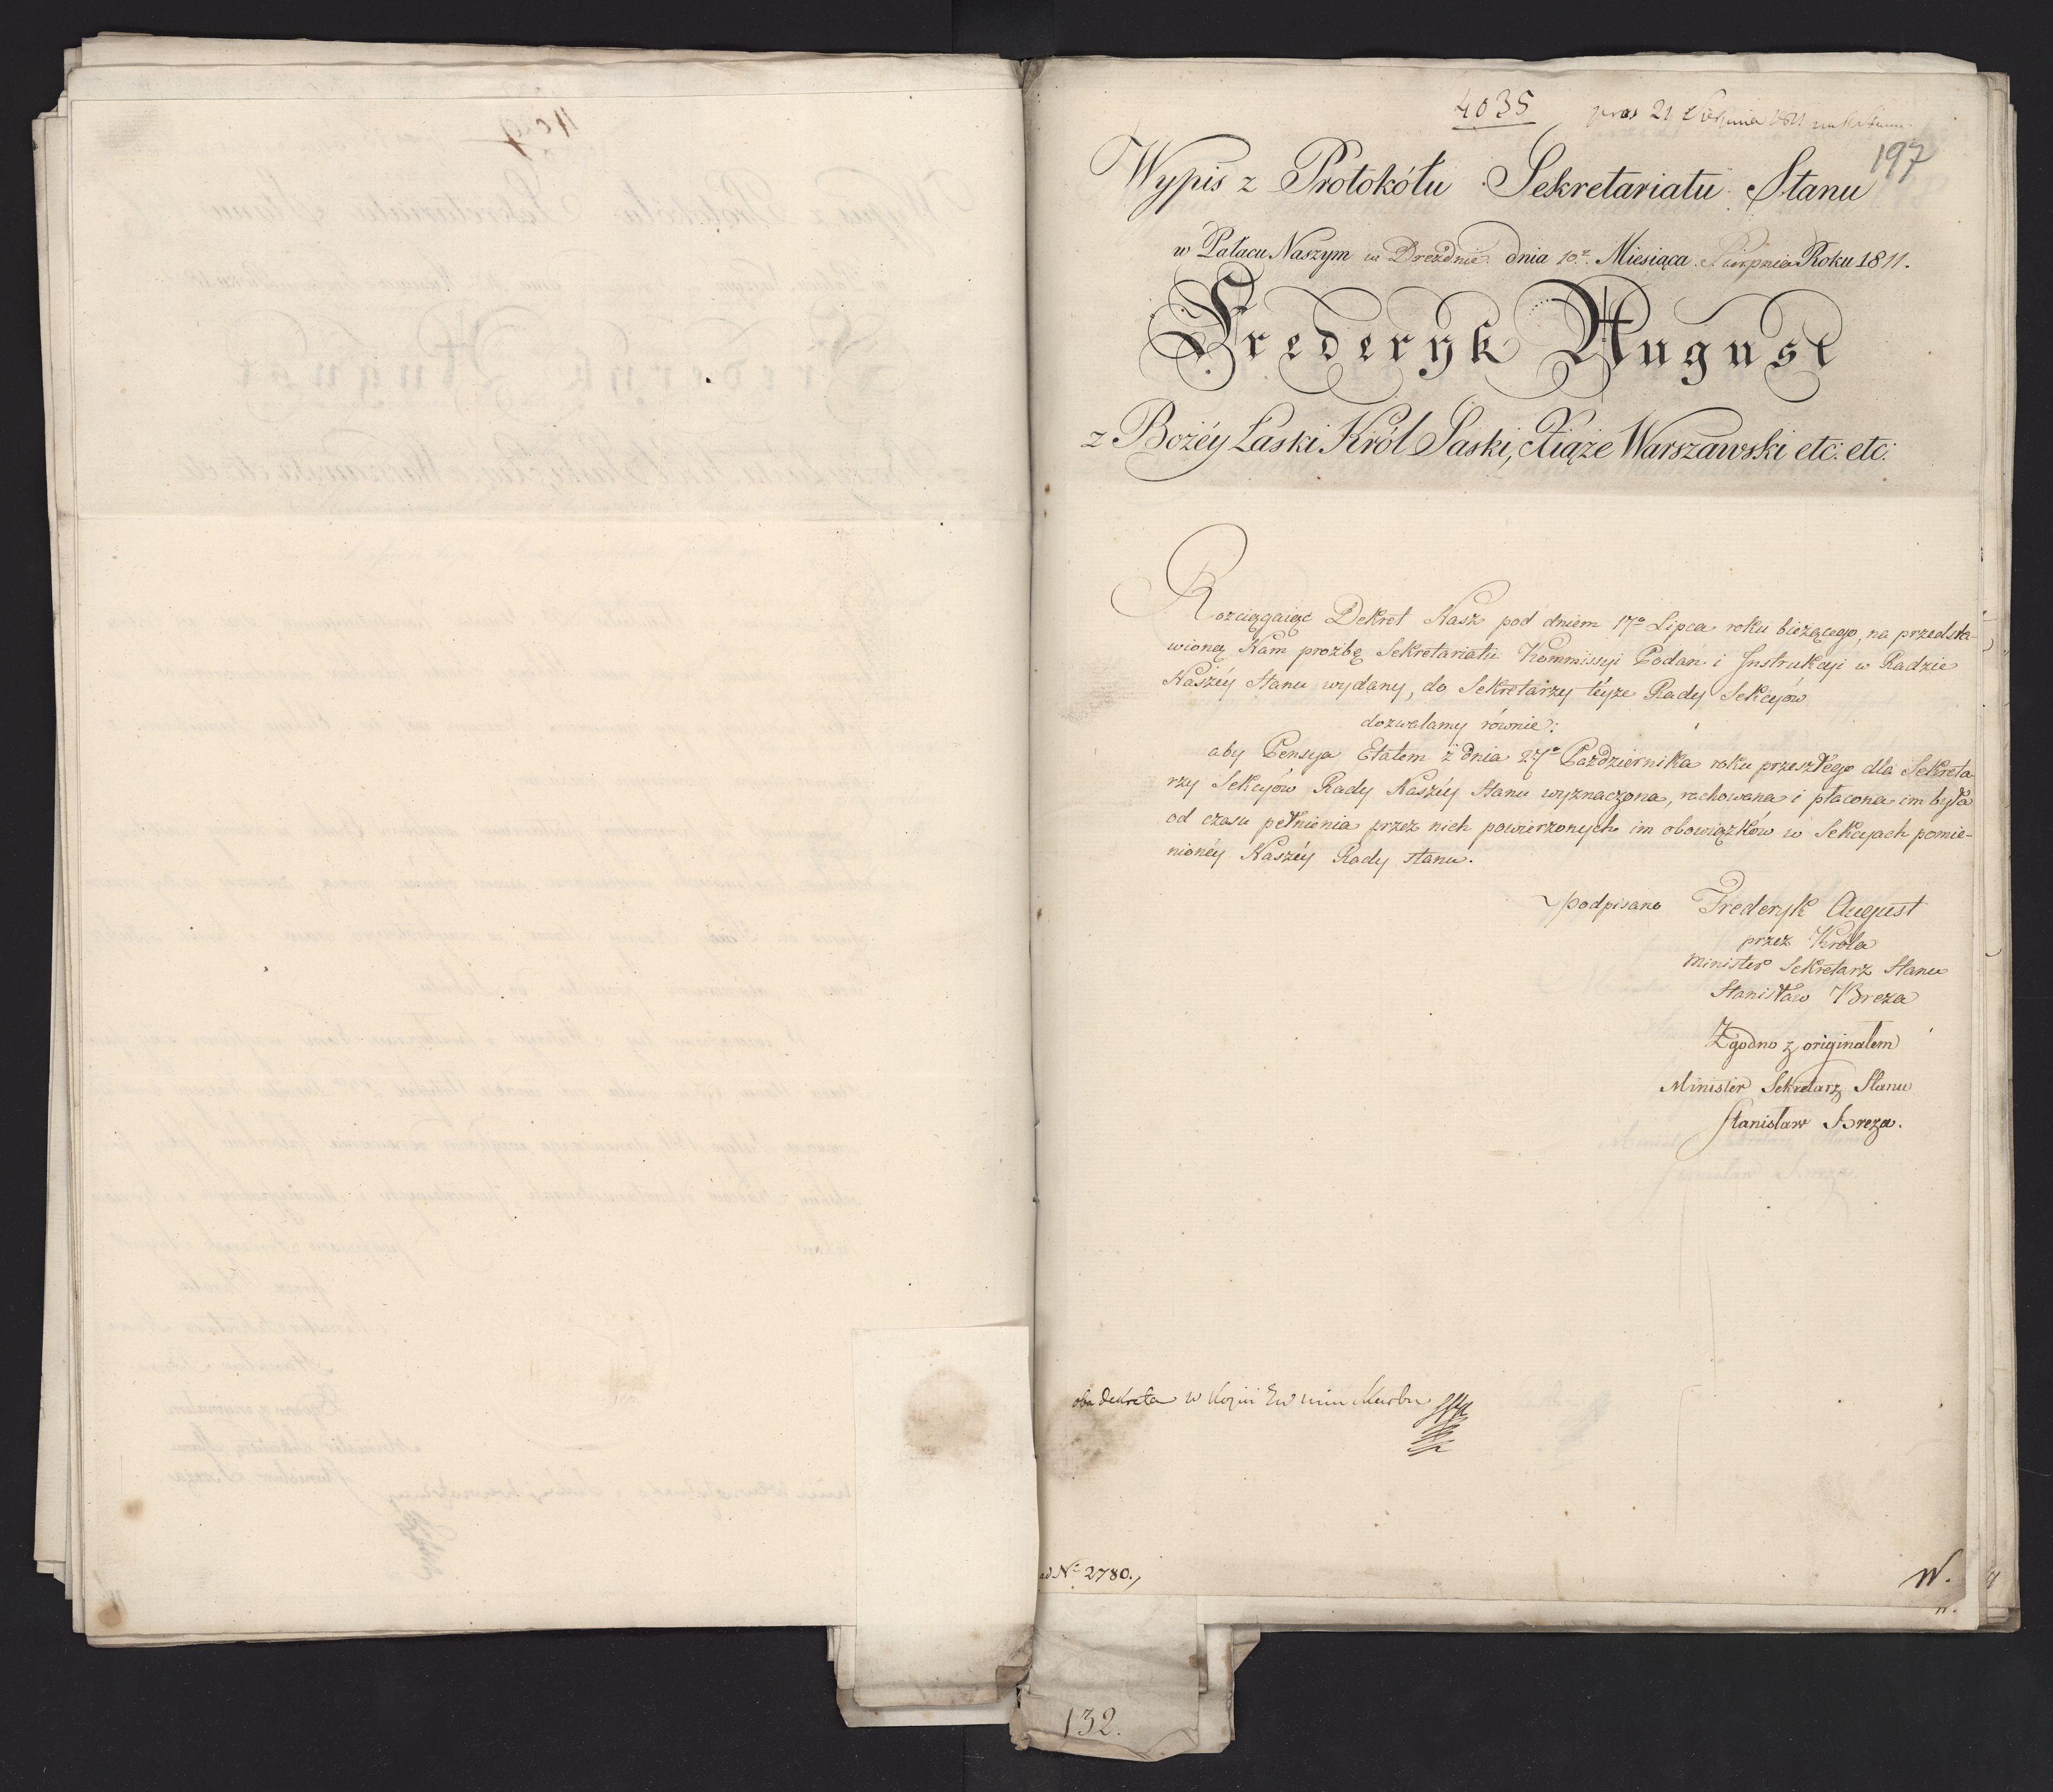 4035
pras 21 Sierpnia 1811
197
Wypis z Protokółu Sekretariatu Stanu
w Pałacu Naszym w Dreźdnie dnia 10º Miesiąca Sierpnia Roku 1811.
Frederyk August
z Bożéy Łaski Król Saski, Xiąże Warszawski etc: etc:
Rozciągaiąc Dekret Nasz pod dniem 17º Lipca roku bieżącego, na przedsta-
wioną Nam proźbę Sekretariatu Kommissyi Podań i Instrukcyi w Radzie
Naszéy Stanu wydany, do Sekretarzy téyże Rady Sekcyów
dozwalamy równie:
aby Pensya Etatem z dnia 27º Października roku przeszłego dla Sekreta
rzy Sekcyów Rady Naszéy Stanu wyznaczona, rachowana i płacona im była
od czasu pełnienia przez nich powierzonych im obowiązków w Sekcyach pomie-
nionéy Naszéy Rady stanu.
podpisano Frederyk August
przez Króla
Minister Sekretarz Stanu
Stanisław Breza
Zgodno z originałem
Minister Sekretarz Stanu
Stanisław Breza.
oba dekreta w Kopii Skarbu
ad Nº 2780.,
W.
132.